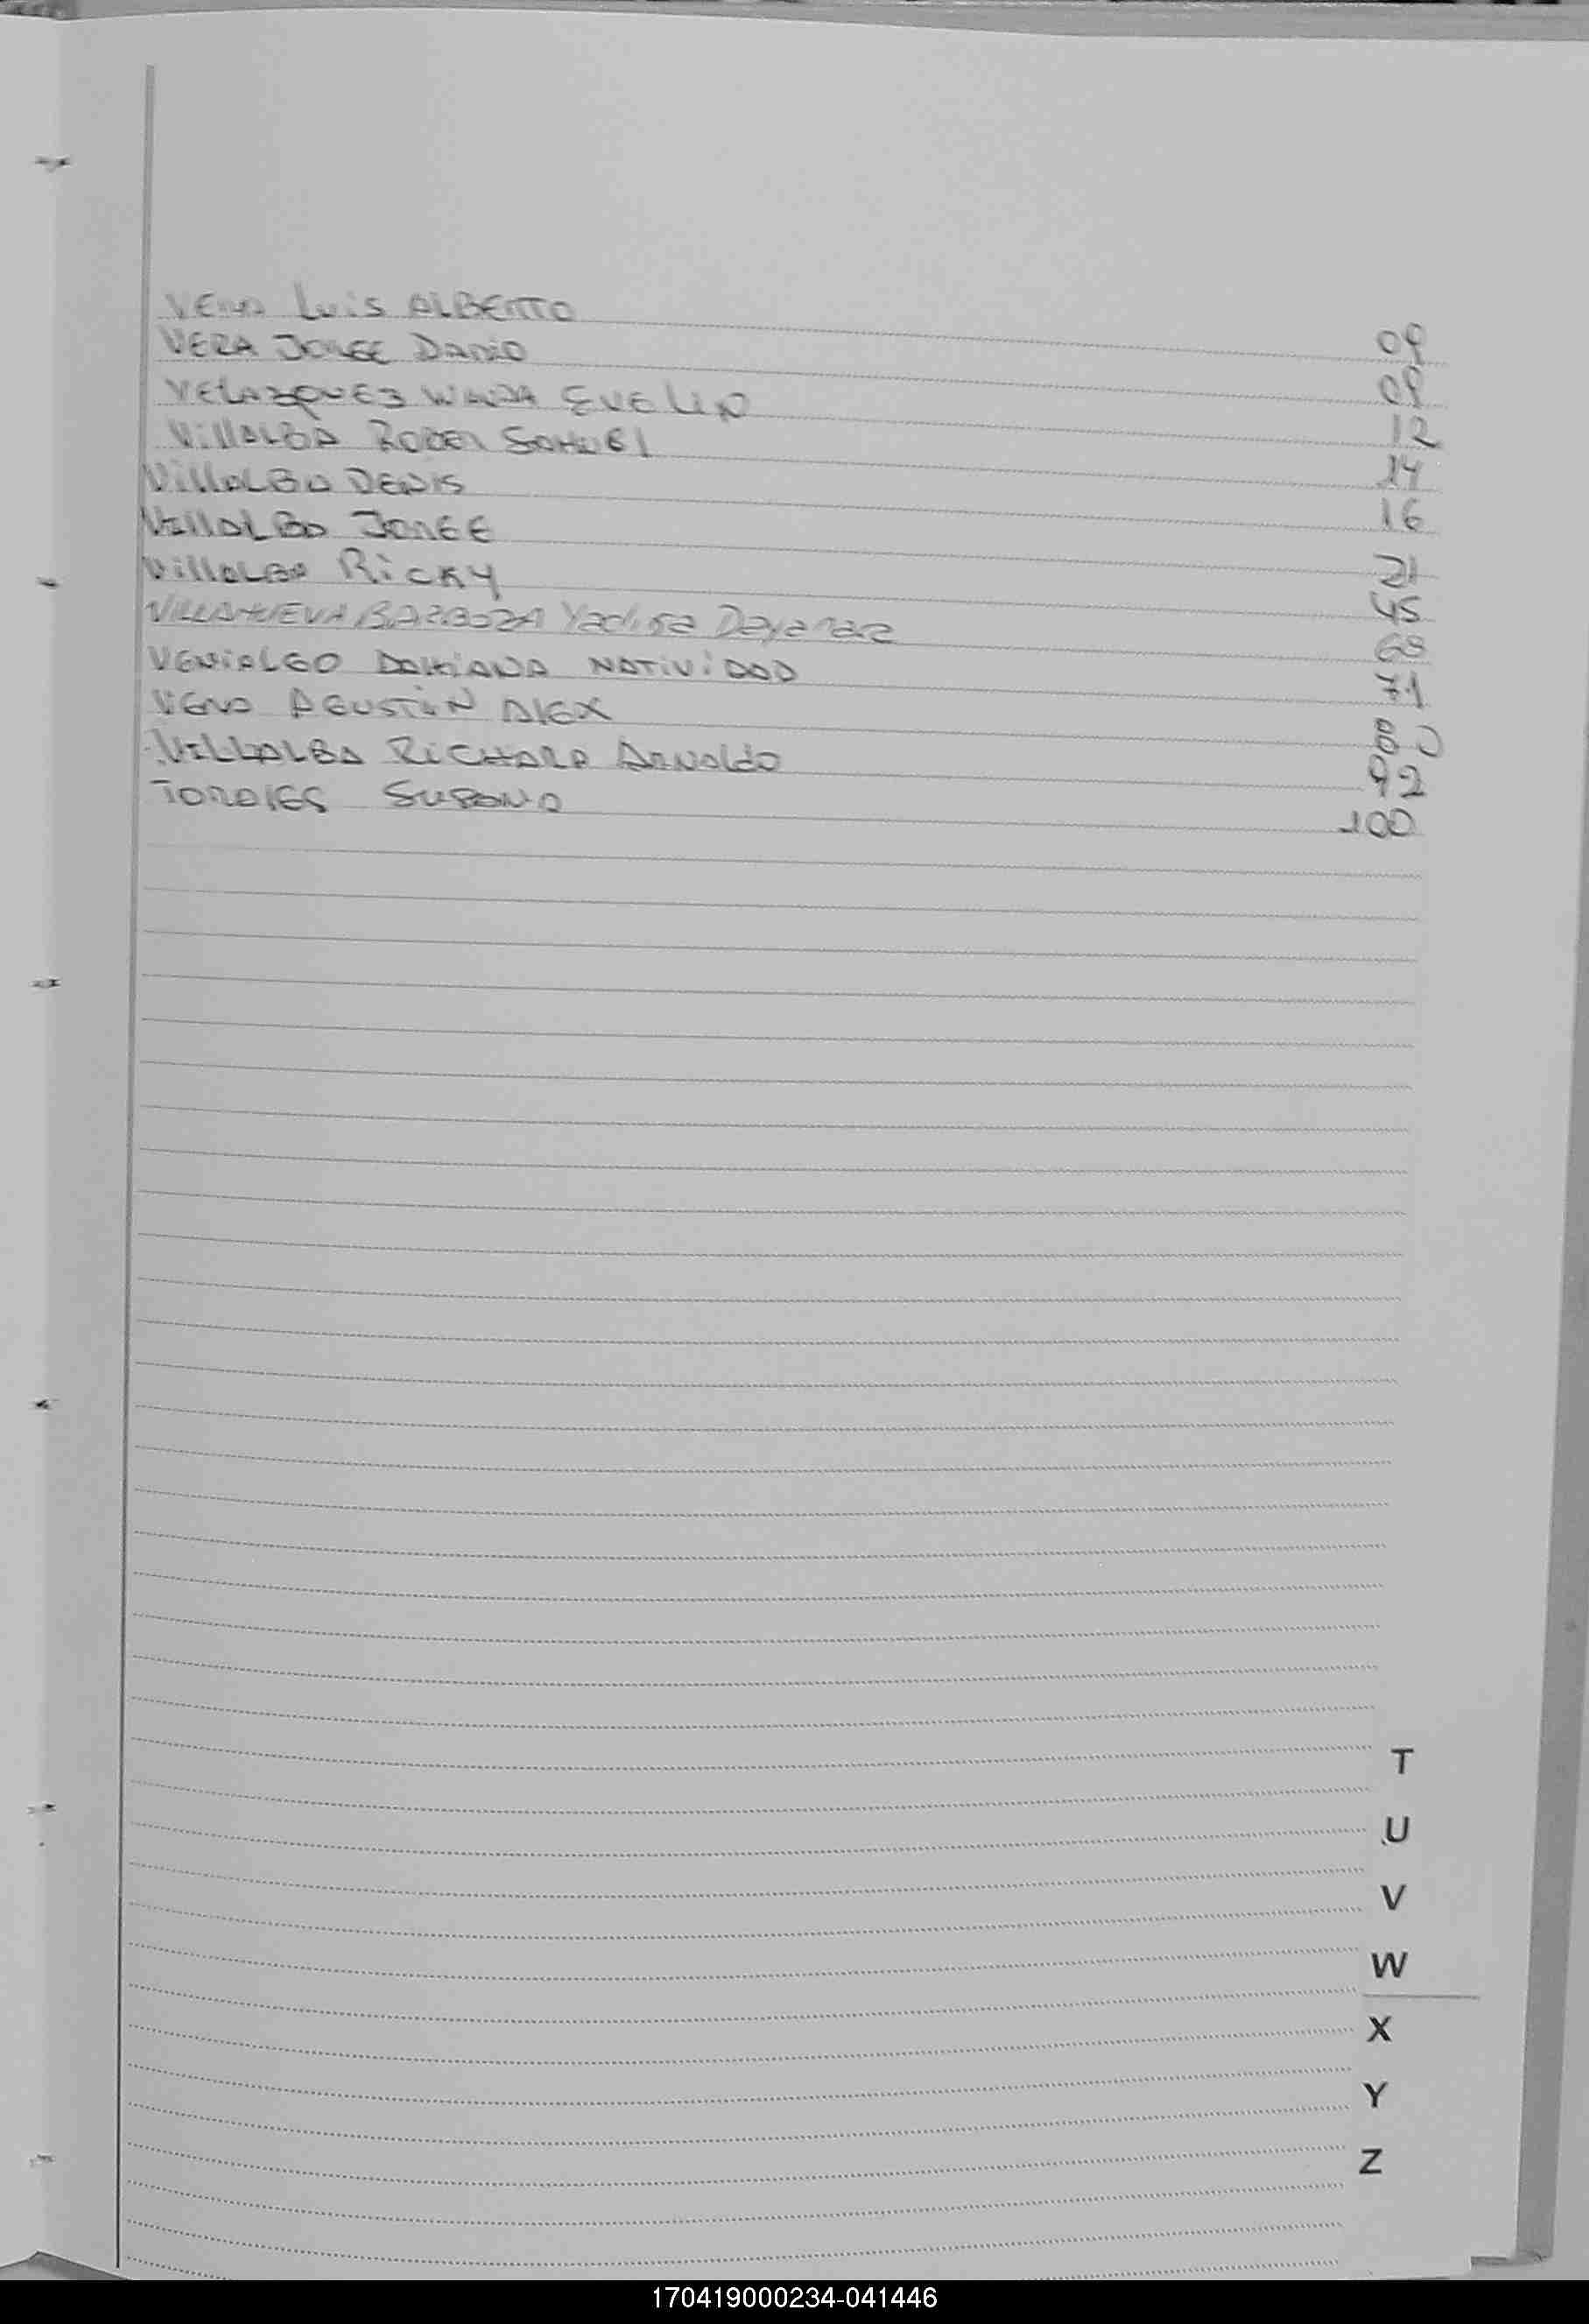 VERA Luis ALBERTO 09
VERA JORGE DARIO 09
VELAZQUEZ WANDA EVELIN 12
VillALBA ROBER SAMUEl 14
VillALBA DENIS 16
VIllALBA JORGE 21
VillALBA RiCKY 45
VILLANUEVA BARBOZA Yadira Dayanara 68
VENIALGO DAMIANA NATIVIDAD 71
VERA AGUSTIN AlEX 80
VILLALBA RICHARD ARNAldo 92
TORALES SUSANA 100
T
U
V
W
X
Y
Z
170419000234-041446